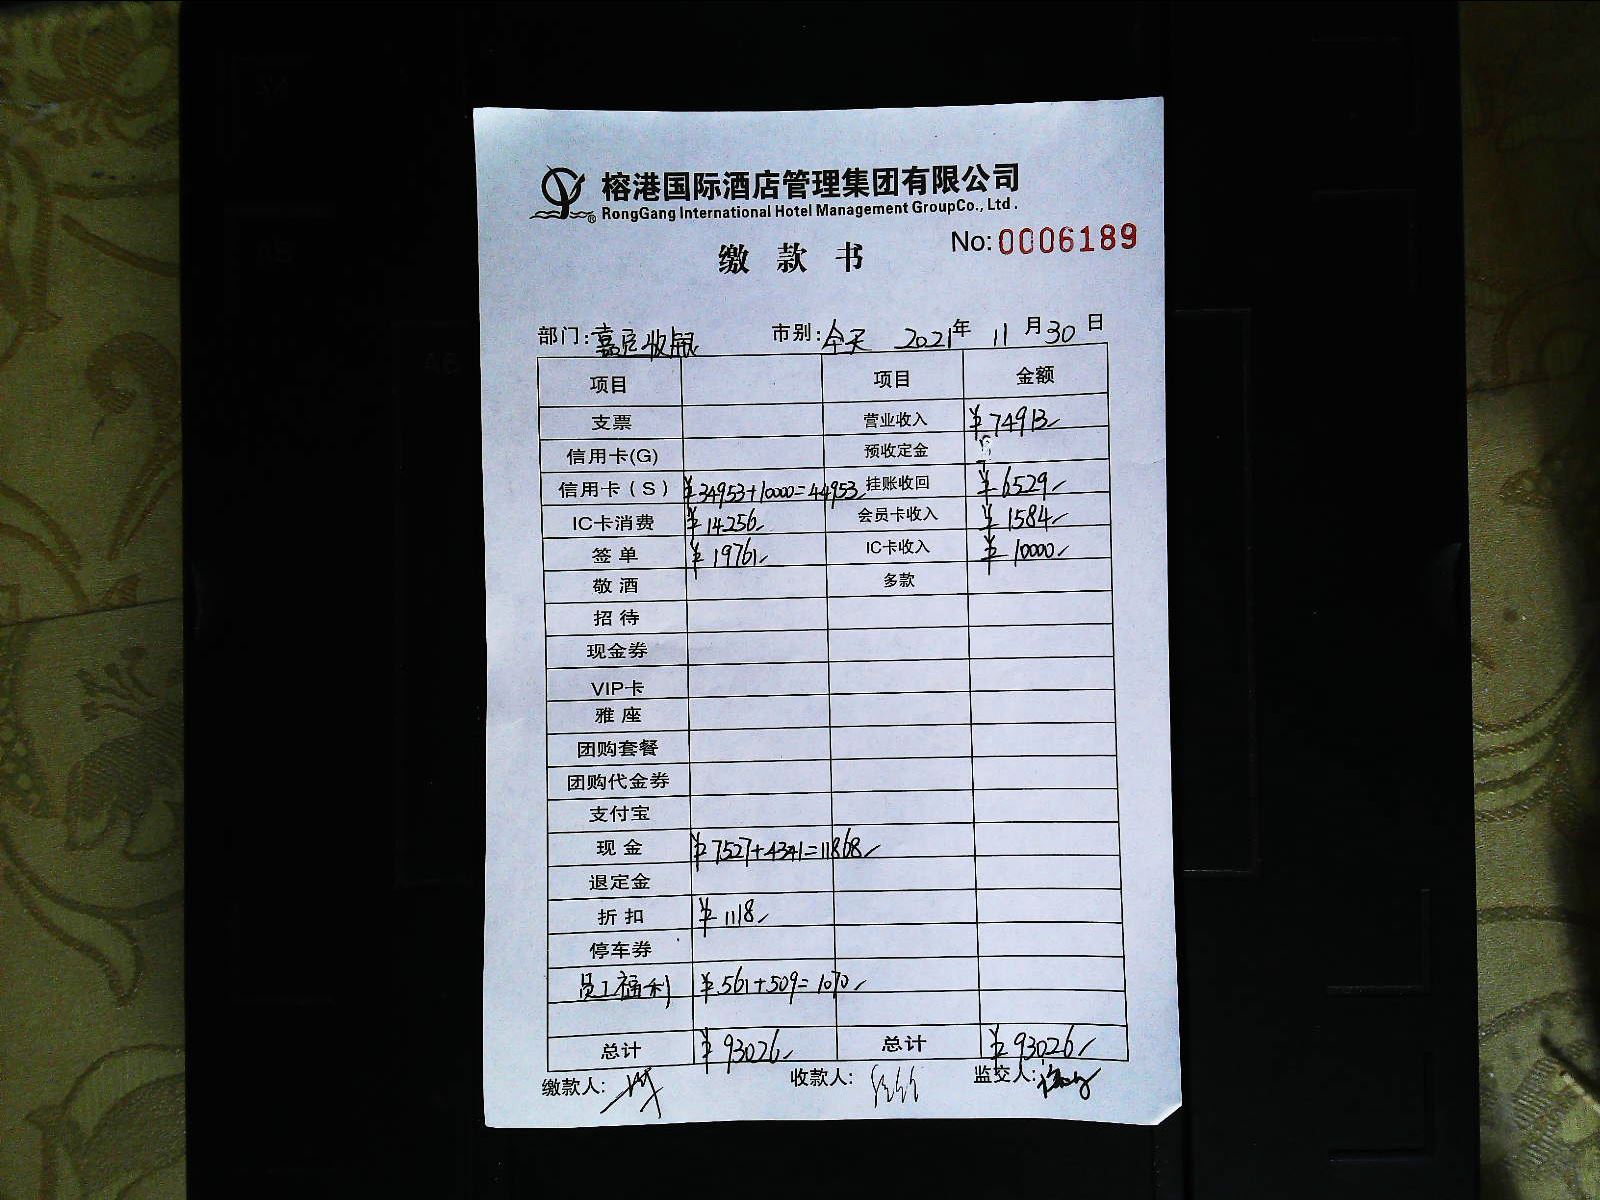 榕港国际酒店管理集团有限公司
RongGang International Hotel Management GroupCo., Ltd.
No:0006189
缴 款 书
部门: 嘉宾收银 市别: 今天 2021年 11月30日
项目 项目 金额
支票 营业收入 ¥74913
信用卡(G) 预收定金
信用卡(S) ¥34953+10000=44953 挂账收回 ¥6529
IC卡消费 ¥14256 会员卡收入 ¥1584
签单 ¥19761 IC卡收入 ¥10000
敬酒 多款
招待
现金券
VIP卡
雅座
团购套餐
团购代金券
支付宝
现金 ¥7527+4341=11868
退定金
折扣 ¥1118
停车券
员工福利 ¥561+509=1070
总计 ¥93026 总计 ¥93026
缴款人: 收款人: 监交人: